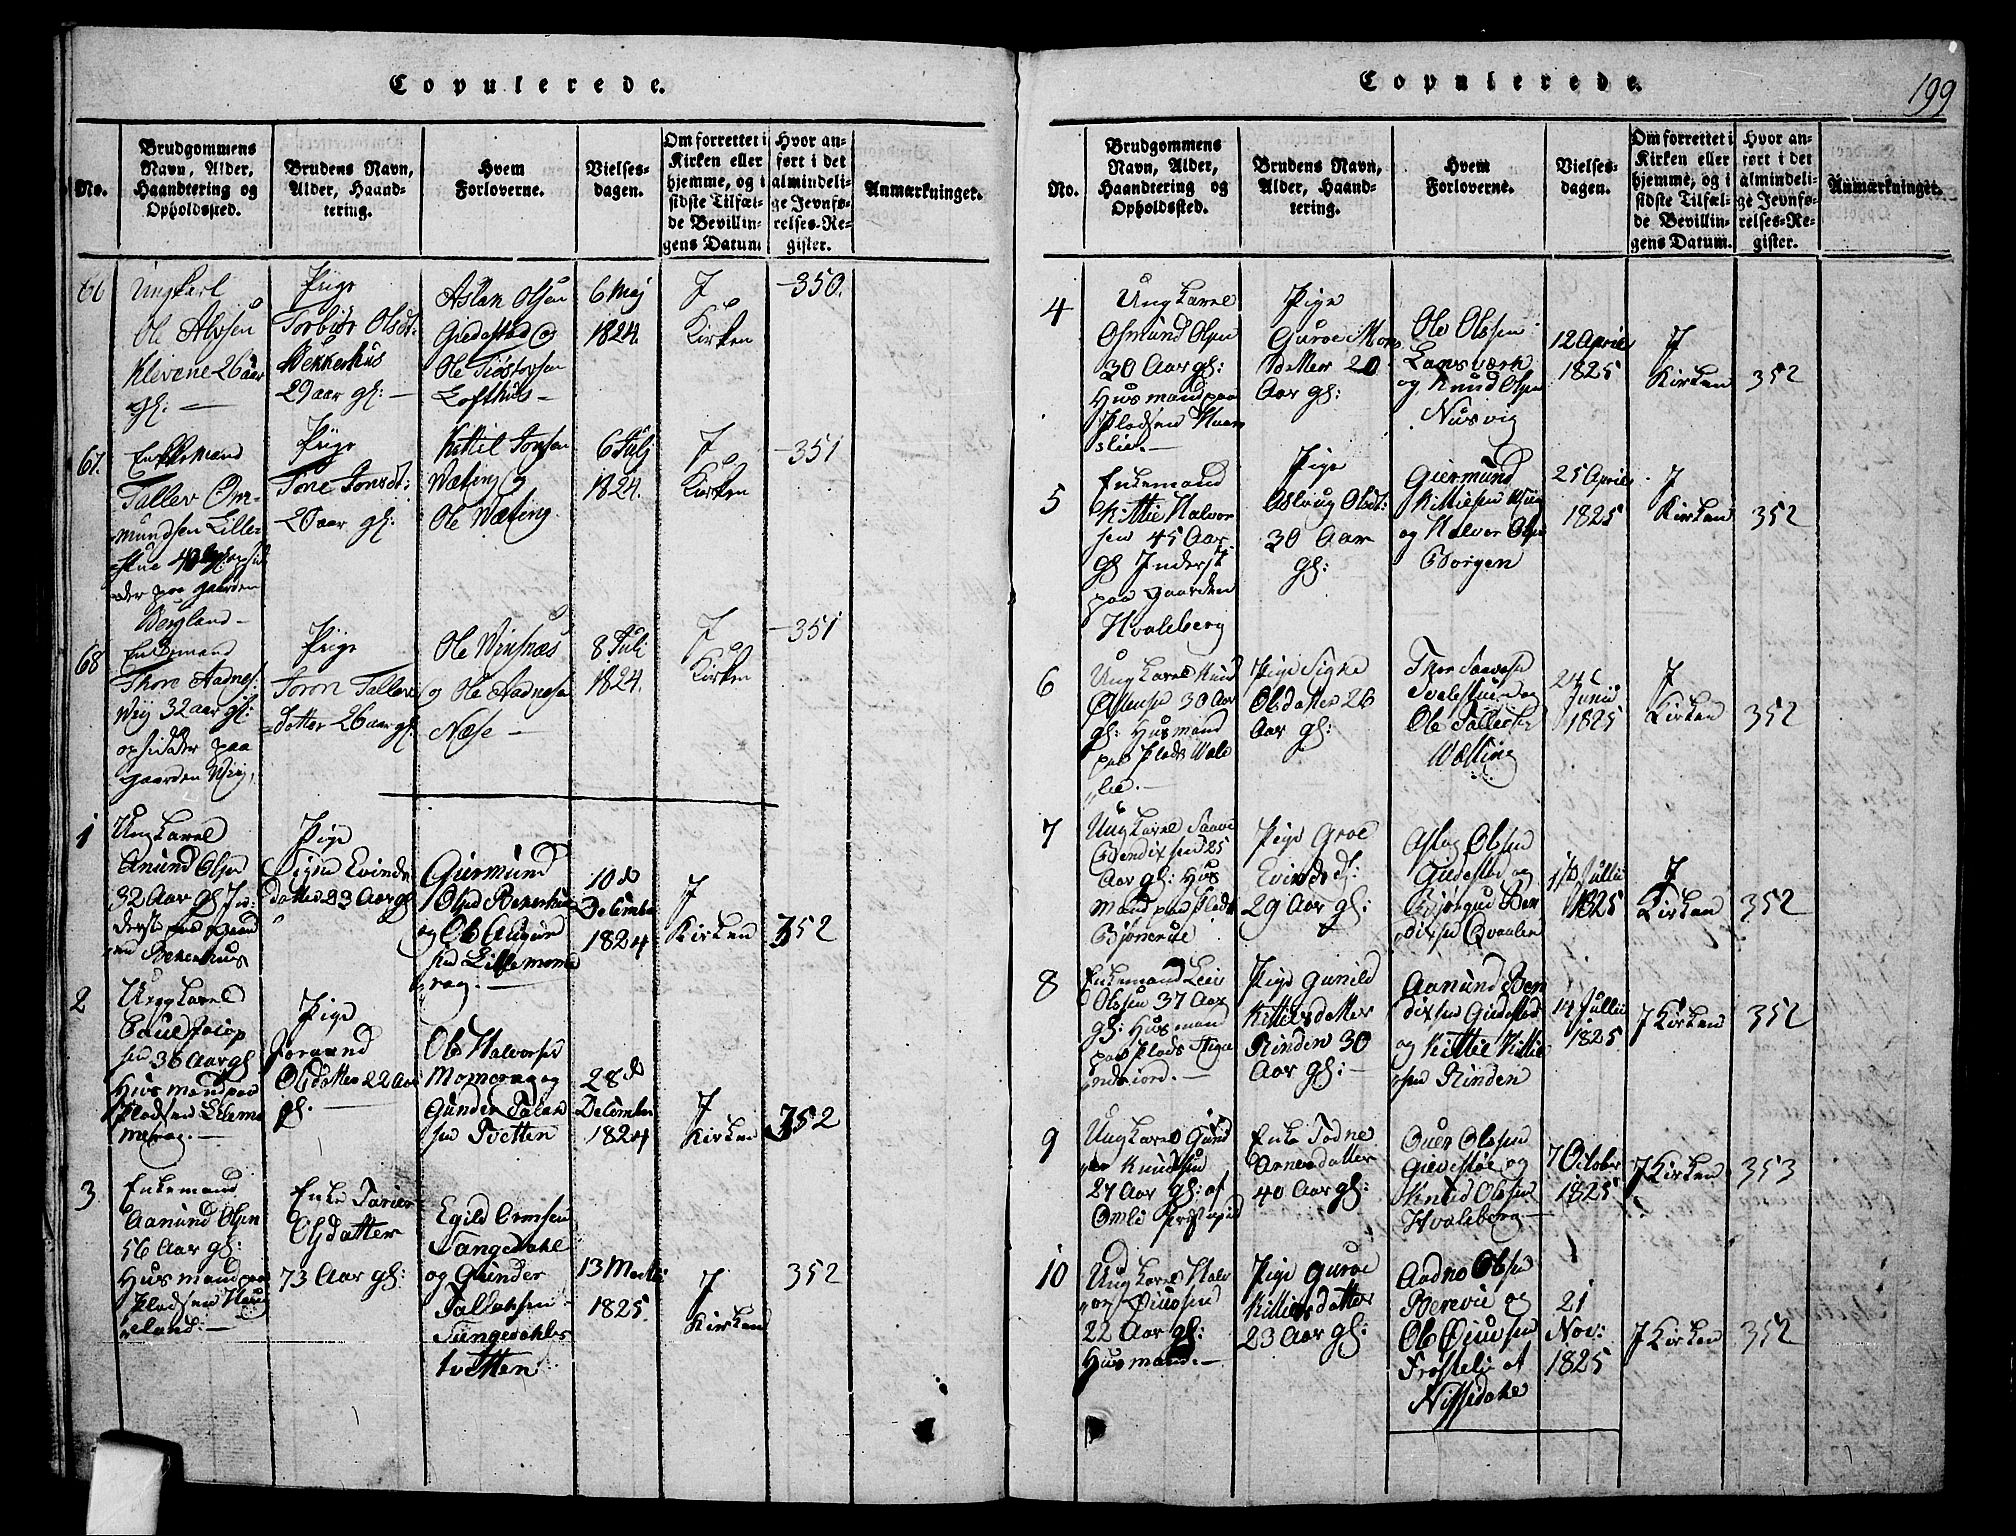 Copulerede.
No.
Brudgommens
Navn, Alder,
Haandtering og
Opholdssted.
Brudens Navn,
Alder, Haand-
tering.
Hvem
Forloverne.
Vielses-
dagen.
Om forrettet i
Kirken eller
hjemme, og i
sidste Tilfæl-
de Bevillin-
gens Datum.
Hvor an-
ført i det
almindeli-
ge Jevnfø-
relses-Re-
gister.
Anmærkninger.
66
Ungkarl
Ole Alvsen
Klevene 26 aar
gl:
Pige
Torbiør Olsdt:
Bekkerhus
29 aar gl:
Aslak Olsen
Giedestad og
Ole Tiøstolvsen
Lofthus
6 Maj
1824.
J
Kirken
350.
67.
Enkemand
Tallev Om-
mundsen Lille-
paa gaarden
Bergland
Pige
Tone Jonsdt:
20 aar gl:
Kittil Jonsen
Wæting og
Ole Wæting.
6 Juli
1824.
J
Kirken
351
68
Enkemand
Thore Aadnes:
Wej 32 aar gl:
opsidder paa
gaarden Wej,
Pige
Joron Tallevs
datter 26 aar gl.
Ole Winsnæs
og Ole Aadnesen
Næse
8 Juli
1824.
J
Kirken
351
1
Ung Karel
Anund Olsen
32 Aar gl: In-
derst paa gaard
en Bekerhuus
Pige
Signe Evinds
datter 23 Aar gl
Giermund
Olsen Bekerhus
og Ole Augun
sen Lillemome
rag.
10 d
Decembr
1824
J
Kirken
352
2
Ung Karel
Poul Joop
sen 36 Aar gl
Huusmand paa
Pladsen Lillemo
merag.
Pige
Joraand
Olsdatter 22 Aar
gl.
Ole Halvorsen
Momerag og
Gunder Talak
sen Tvetten
28 d
Decembr
1824
J
Kirken
352
3
Enkemand
Aanund Olsen
56 Aar gl:
Husmand paa
Pladsen Hauge
land.
Enke Tarier
Olsdatter
73 Aar gl:
Egild Ormsen
Tangedahl
og Gunder
Tallaksen
Tungedahls
tvetten
13 Martz
1825.
J
Kirken
352
Copulerede.
199
No.
Brudgommens
Navn, Alder,
Haandtering og
Opholdssted.
Brudens Navn,
Alder, Haand-
tering.
Hvem
Forloverne.
Vielses-
dagen.
Om forrettet i
Kirken eller
hjemme, og i
sidste Tilfæl-
de Bevillin-
gens Datum.
Hvor an-
ført i det
almindeli-
ge Jevnfø-
relses-Re-
gister.
Anmærkninger.
4
Ung Karel
Osmund Olsen
30 Aar gl:
Husmand paa
Pladsen
slie.
Pige
Guroe Mons
datter 20
Aar gl:
Ole Olsen
Lansværk
og Knud Olsen
Nusvig
12 April
1825
J
Kirken
352
5
Enkemand
Kittie Halvor
sen 45 Aar
gl Inderst
paa Gaarden
Hvaleberg
Pige
Aslaug Olsdt:
30 Aar
gl:
Giermund
Kittiesen
og Halvor Olsen
Borgen
25 April
1825
J
Kirken
352
6
Ung Karel Knud
Østensen 30 Aar
gl: Husmand
paa Plads Wale
lie.
Pige Signe
Olsdatter 26
Aar gl:
Thor Saavesen
og
Ole Tallevsen
Wætting
24
Junii
1825
J
Kirken
352
7
Ung Karel Saave
Bendixsen 25
Aar gl: Hus
mand paa Plads
Bjønerue
Pige Groe
Evindsd:
29 Aar gl:
Aslag Olsen
Gidestad og
Bjørgud Ben
dixsen Qvaalen
Jullii
1825
J
Kirken
352
8
Enkemand Leiv
Olsen 37 Aar
gl: Husmand
paa Plads
Pige Gunild
Kittiesdatter
Rinden 30
Aar gl:
Aanund Ben
dixsen Gidestad
og Kittie Kittie
sen Rinden
14 Jullii
1825
J Kirken
352
9
Ung Karel Gund
er Knudsen
27 Aar gl: af
Omli Prestegield
Enke Todne
Arnesdatter
40 Aar gl:
Over Olsen
Gievestøe og
Knud Olsen
Hvaleberg
7 October
1825
J Kirken
353
10
Ung Karel Halv
or Diusen
22 Aar gl:
Husmand.
Pige Guroe
Kittiesdatter
23 Aar gl:
Aadne Olsen
Berevie og
Ole Diursen
Frøstelie af
Nissedahl
21
Nov:
1825
J Kirken
352